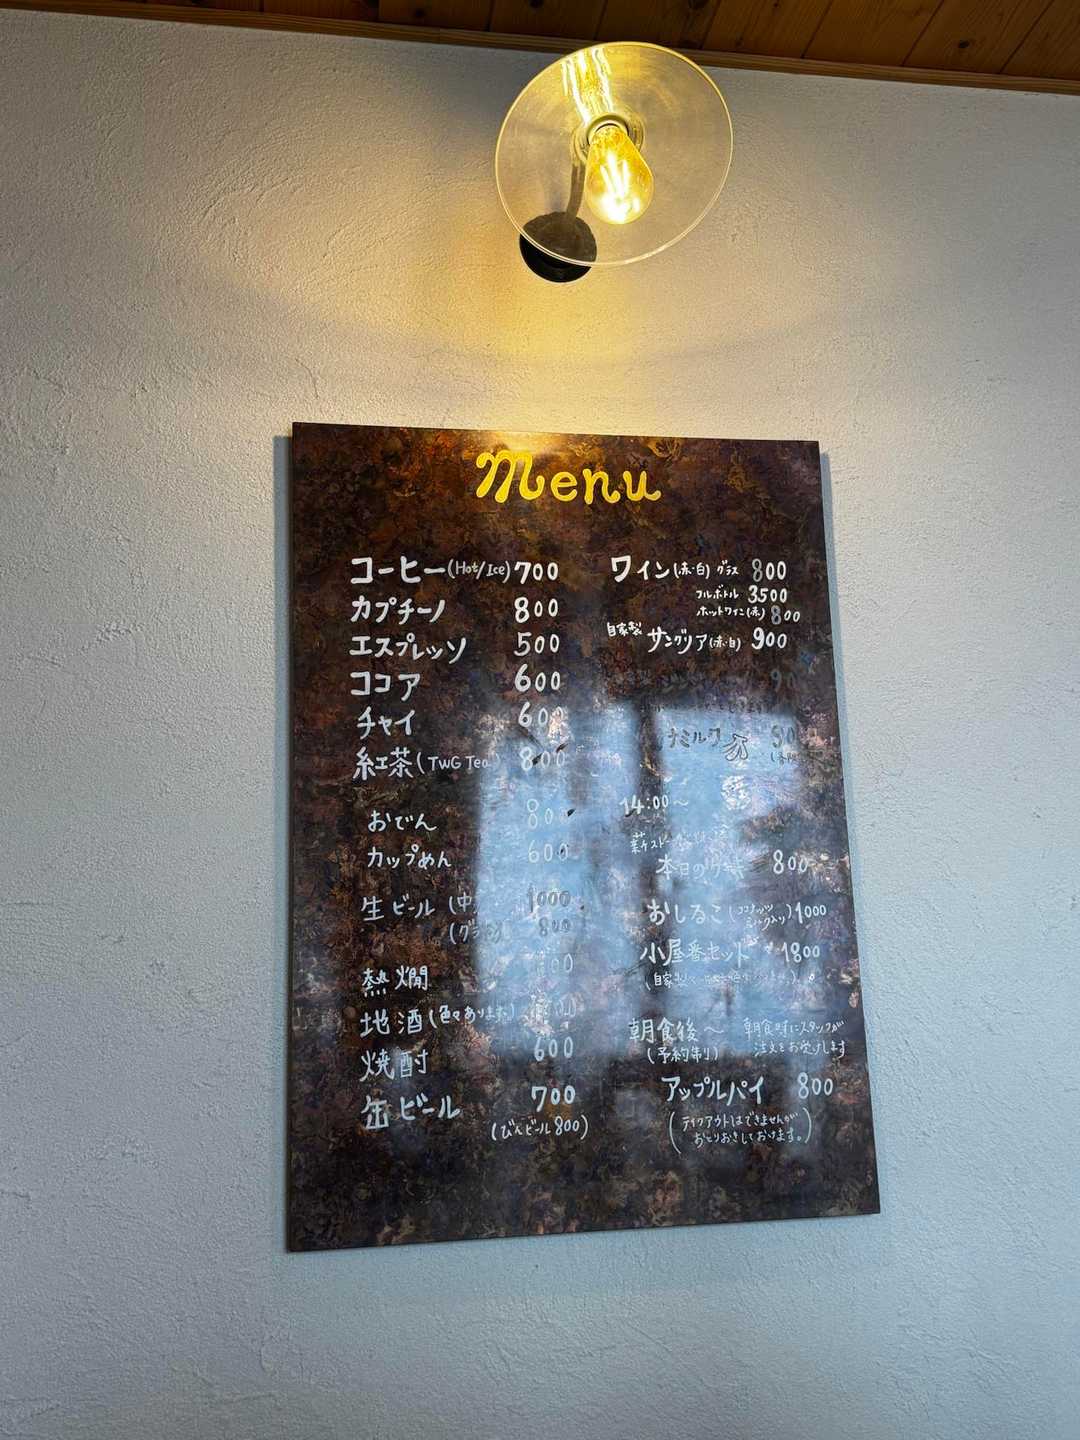 Menu
コーヒー(Hot/Ice) 700
カプチーノ 800
エスプレッソ 500
ココア 600
チャイ 600
紅茶(TWG Tea) 800
おでん
カップめん 600
生ビール (中) 1000
800
熱燗
地酒(色々あります)
焼酎 600
缶ビール 700
(びんビール800)
ワイン(赤・白) グラス 800
フルボトル 3500
ホットワイン(赤) 800
自家製 サングリア(赤・白) 900
14:00〜
本日の 800
おしるこ(ココナッツミルク入り) 1000
小屋番セット 1800
朝食後〜 朝食時にスタッフが
(予約制) 注文をお受けします
アップルパイ 800
(テイクアウトはできませんが
おとりおきしておけます。)